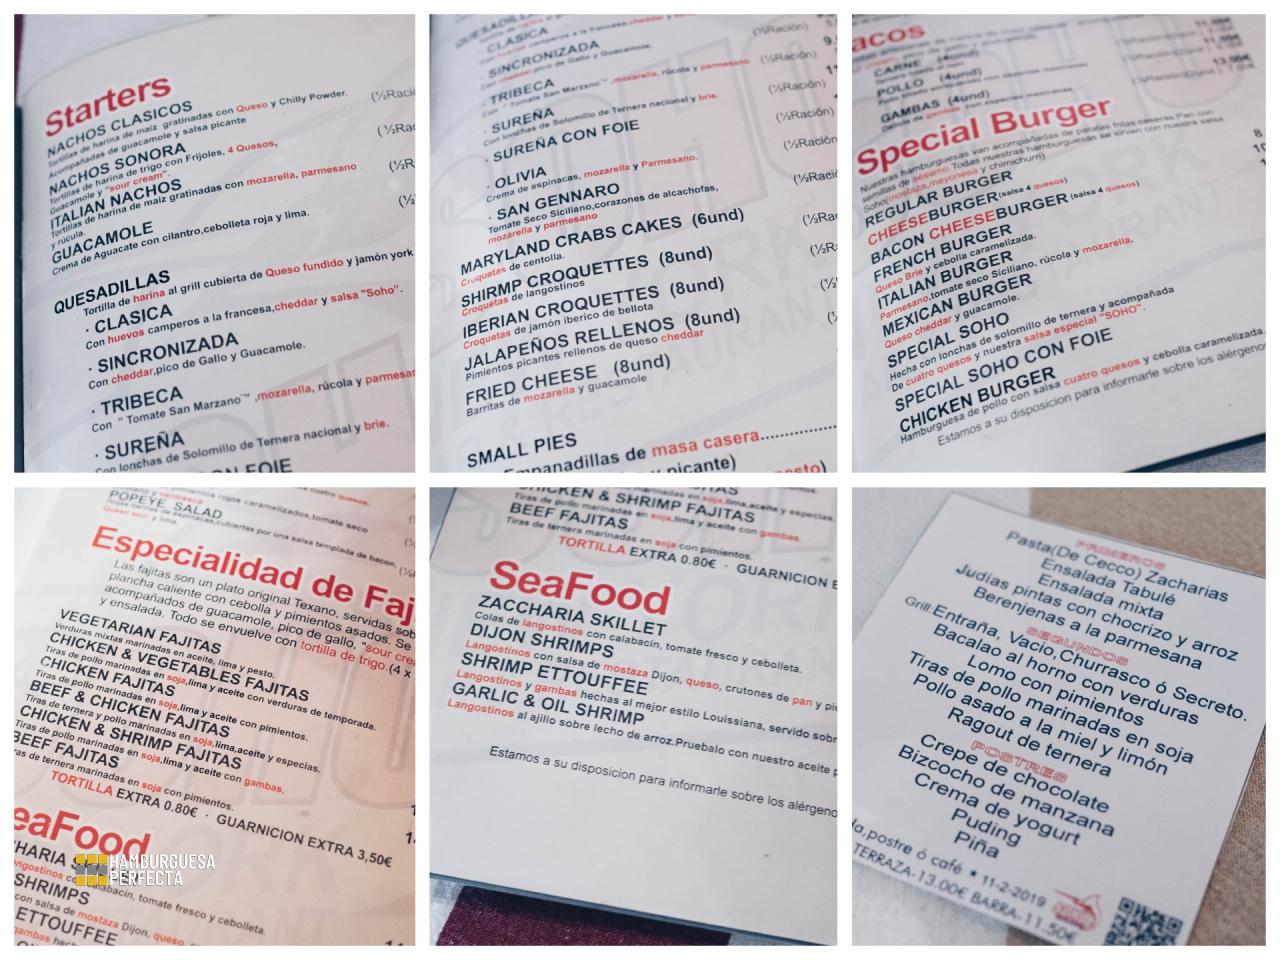 Starters
NACHOS CLASICOS
Tortillas de harina de maiz gratinadas con Queso y Chilly Powder.
Acompañadas de guacamole y salsa picante
(½Ració
NACHOS SONORA
Tortillas de harina de trigo con Frijoles, 4 Quesos,
Guacamole y "sour cream".
(½Rac
ITALIAN NACHOS
Tortillas de harina de maiz gratinadas con mozarella, parmesano
y rúcula.
(½Rac
GUACAMOLE
Crema de Aguacate con cilantro,cebolleta roja y lima.
(½
QUESADILLAS
Tortilla de harina al grill cubierta de Queso fundido y jamón york
· CLASICA
Con huevos camperos a la francesa,cheddar y salsa "Soho".
· SINCRONIZADA
Con cheddar,pico de Gallo y Guacamole.
· TRIBECA
Con " Tomate San Marzano™" ,mozarella, rúcola y parmesan
· SUREÑA
Con lonchas de Solomillo de Ternera nacional y brie.
CON FOIE
QUESADILLA
· CLASICA
camperos a la francesa,cheddar y
· SINCRONIZADA
cheddar,pico de Gallo y Guacamole.
(½Ración)
· TRIBECA
Con " Tomate San Marzano™" ,mozarella, rúcola y parmesano
(½Ración)
· SUREÑA
Con lonchas de Solomillo de Ternera nacional y brie.
(½Ración)
· SUREÑA CON FOIE
(½Ración)
· OLIVIA
Crema de espinacas, mozarella y Parmesano.
(½Ración
· SAN GENNARO
Tomate Seco Siciliano,corazones de alcachofas,
mozarella y parmesano
(½Ració
MARYLAND CRABS CAKES (6und)
Croquetas de centolla.
(½Rac
SHIRMP CROQUETTES (8und)
Croquetas de langostinos
(½Ra
IBERIAN CROQUETTES (8und)
Croquetas de jamón iberico de bellota
(½R
JALAPEÑOS RELLENOS (8und)
Pimientos picantes rellenos de queso cheddar
(½
FRIED CHEESE (8und)
Barritas de mozarella y guacamole
SMALL PIES
Empanadillas de masa casera
y picante)
esto)
acos
CARNE (4und)
POLLO (4und)
GAMBAS (4und)
Special Burger
Nuestras hamburguesas van acompañadas de patatas fritas caseras.Pan con
semillas de sésamo.Todas nuestras hamburguesas se sirven con nuestra salsa
Soho(mostaza,mayonesa y chimichurri)
REGULAR BURGER
CHEESEBURGER(salsa 4 quesos)
BACON CHEESEBURGER(salsa 4 quesos)
FRENCH BURGER
Queso Brie y cebolla caramelizada.
ITALIAN BURGER
Parmesano,tomate seco Siciliano, rúcola y mozarella.
MEXICAN BURGER
Queso cheddar y guacamole.
SPECIAL SOHO
Hecha con lonchas de solomillo de ternera y acompañada
De cuatro quesos y nuestra salsa especial "SOHO".
SPECIAL SOHO CON FOIE
CHICKEN BURGER
Hamburguesa de pollo con salsa cuatro quesos y cebolla caramelizada.
Estamos a su disposicion para informarle sobre los alérgeno
pimientos rojos caramelizados,tomate seco
POPEYE SALAD
Hojas tiernas de espinacas,cubiertas por una salsa templada de bacon,
Queso azul y lima.
Especialidad de Faj
Las fajitas son un plato original Texano, servidas sob
plancha caliente con cebolla y pimientos asados. Se
acompañados de guacamole, pico de gallo, "sour crea
y ensalada. Todo se envuelve con tortilla de trigo.(4 x
VEGETARIAN FAJITAS
Verduras mixtas marinadas en aceite, lima y pesto.
CHICKEN & VEGETABLES FAJITAS
Tiras de pollo marinadas en soja,lima y aceite con verduras de temporada.
CHICKEN FAJITAS
Tiras de pollo marinadas en soja,lima y aceite con pimientos.
BEEF & CHICKEN FAJITAS
Tiras de ternera y pollo marinadas en soja,lima,aceite y especias.
CHICKEN & SHRIMP FAJITAS
Tiras de pollo marinadas en soja,lima y aceite con gambas.
BEEF FAJITAS
ras de ternera marinadas en soja con pimientos.
TORTILLA EXTRA 0.80€ · GUARNICION EXTRA 3,50€
eaFood
HARIA S
angostinos con calabacín, tomate fresco y cebolleta.
SHRIMPS
con salsa de mostaza Dijon, queso,
ETTOUFFEE
gambas hech
HAMBURGUESA
PERFECTA
CHICKEN & SHRIMP FAJITAS
Tiras de pollo marinadas en soja,lima,aceite y especias.
BEEF FAJITAS
soja,lima y aceite con gambas.
Tiras de ternera marinadas en soja con pimientos.
TORTILLA EXTRA 0.80€ · GUARNICION E
SeaFood
ZACCHARIA SKILLET
Colas de langostinos con calabacín, tomate fresco y cebolleta.
DIJON SHRIMPS
Langostinos con salsa de mostaza Dijon, queso, crutones de pan y pic
SHRIMP ETTOUFFEE
Langostinos y gambas hechas al mejor estilo Louissiana, servido sobr
GARLIC & OIL SHRIMP
Langostinos al ajillo sobre lecho de arroz.Pruebalo con nuestro aceite p
Estamos a su disposicion para informarle sobre los alérgeno
PRIMEROS
Pasta(De Cecco) Zacharias
Ensalada Tabulé
Ensalada mixta
Judías pintas con chocrizo y arroz
Berenjenas a la parmesana
SEGUNDOS
Grill:Entraña, Vacio,Churrasco ó Secreto.
Bacalao al horno con verduras
Lomo con pimientos
Tiras de pollo marinadas en soja
Pollo asado a la miel y limón
Ragout de ternera
POSTRES
Crepe de chocolate
Bizcocho de manzana
Crema de yogurt
Puding
Piña
da,postre ó café * 11-2-2019
TERRAZA-13.00€ BARRA-11.50€